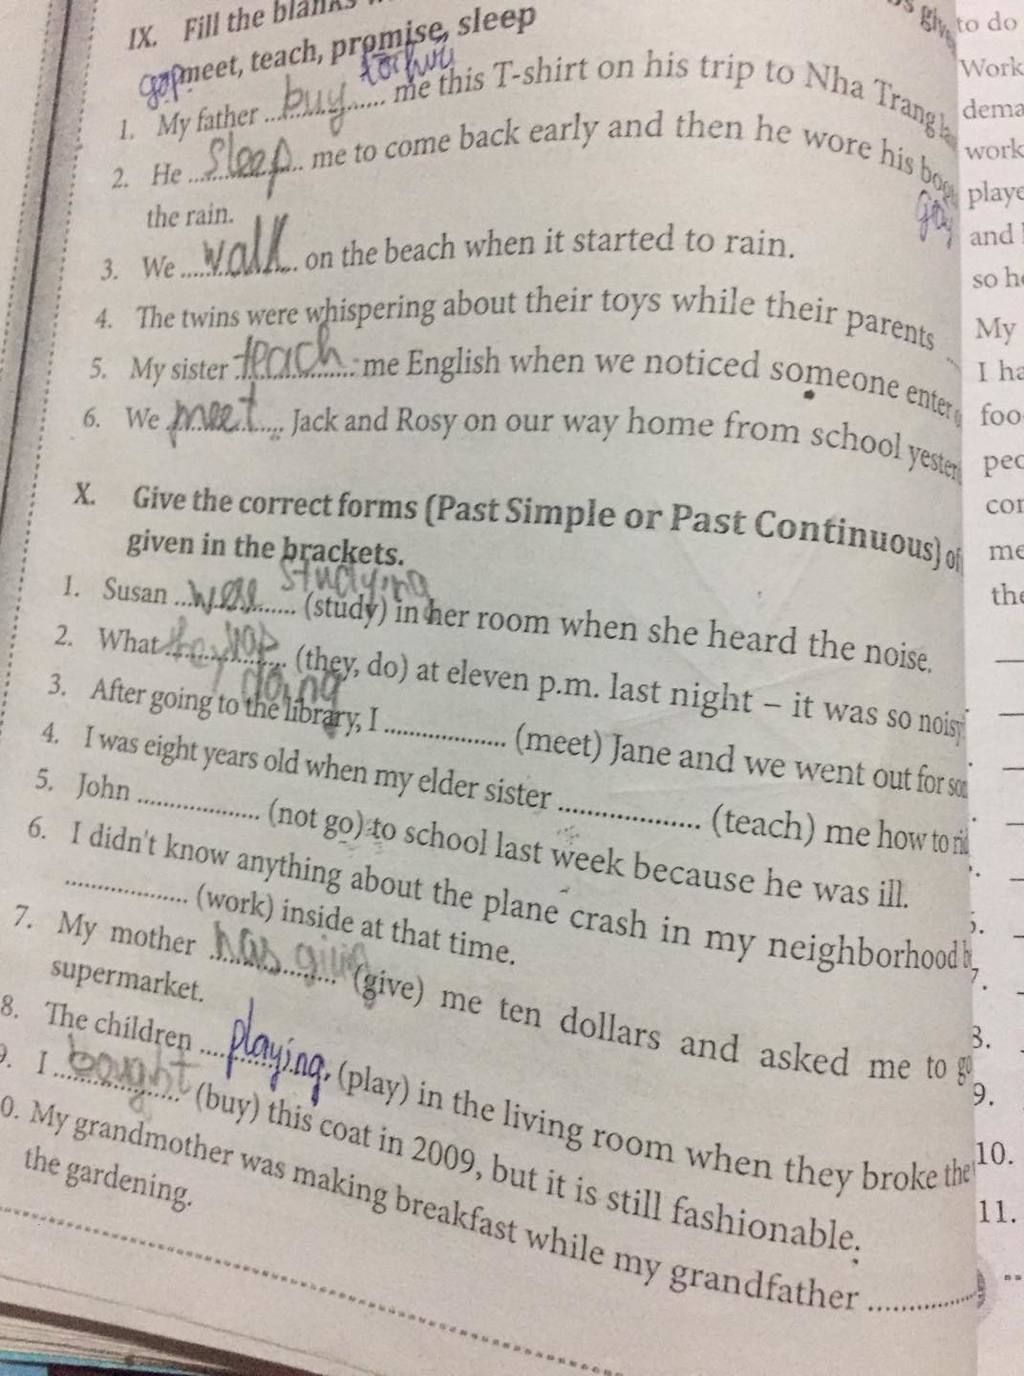 IX. Fill the blanks
meet, teach, promise, sleep
1. My father buy me this T-shirt on his trip to Nha Trang
2. He sleep me to come back early and then he wore his
the rain.
3. We walk on the beach when it started to rain.
4. The twins were whispering about their toys while their parents
5. My sister teach me English when we noticed someone enter
6. We meet Jack and Rosy on our way home from school yester
X. Give the correct forms (Past Simple or Past Continuous) of
given in the brackets.
studying
1. Susan was (study) in her room when she heard the noise.
2. What (they, do) at eleven p.m. last night – it was so noisy
doing
3. After going to the library, I .................. (meet) Jane and we went out for
4. I was eight years old when my elder sister .................. (teach) me how to
5. John .................. (not go) to school last week because he was ill.
6. I didn't know anything about the plane crash in my neighborhood
.................. (work) inside at that time.
7. My mother has (give) me ten dollars and asked me to go
supermarket.
8. The children playing (play) in the living room when they broke the
9. I bought (buy) this coat in 2009, but it is still fashionable.
0. My grandmother was making breakfast while my grandfather ...............
the gardening.
to do
Work
dema
work
playe
and
so he
My
I ha
foo
pec
cor
me
the
7.
8.
9.
10.
11.